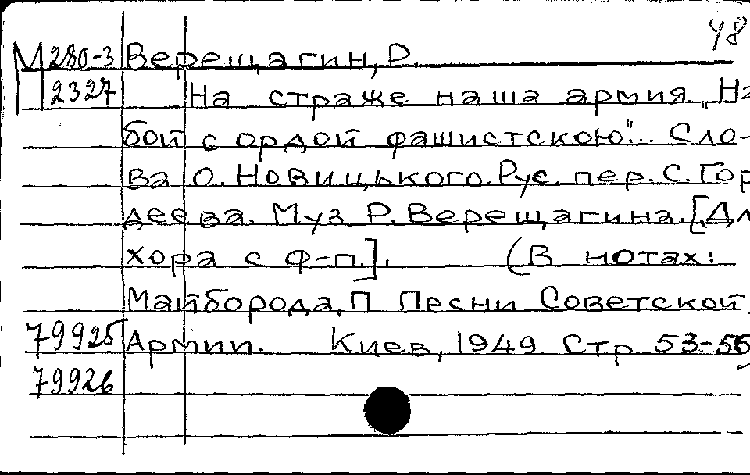 48
М280-3 Верещагин, Р.
П2327 На страже наша армия „На
бой с ордой фашистскою".. Сло-
ва О. Новицького. Рус. пер. С. Гор
деева. Муз Р. Верещагина. [Дл
хора с ф-п.]. (В нотах:
Майборода, П Песни Советской
79925 Армии. Киев, 1949 Стр 53-55
79926